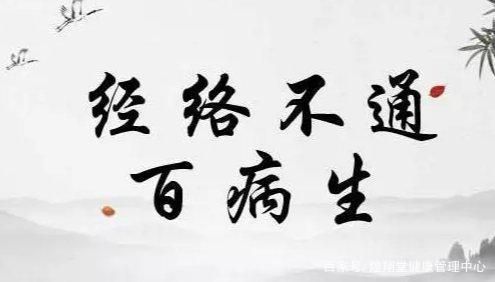 经络不通
百病生
百家号/煌翔堂健康管理中心